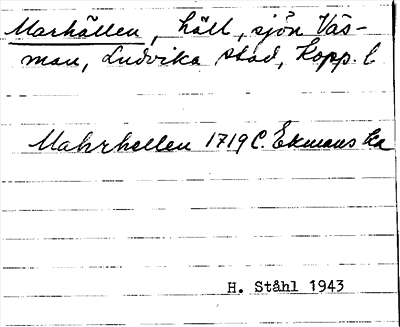 Marhällen, häll, sjön Väs-
man, Ludvika stad, Kopp. l
Mahrhellen 1719 C. Ekmans ka
H. Ståhl 1943